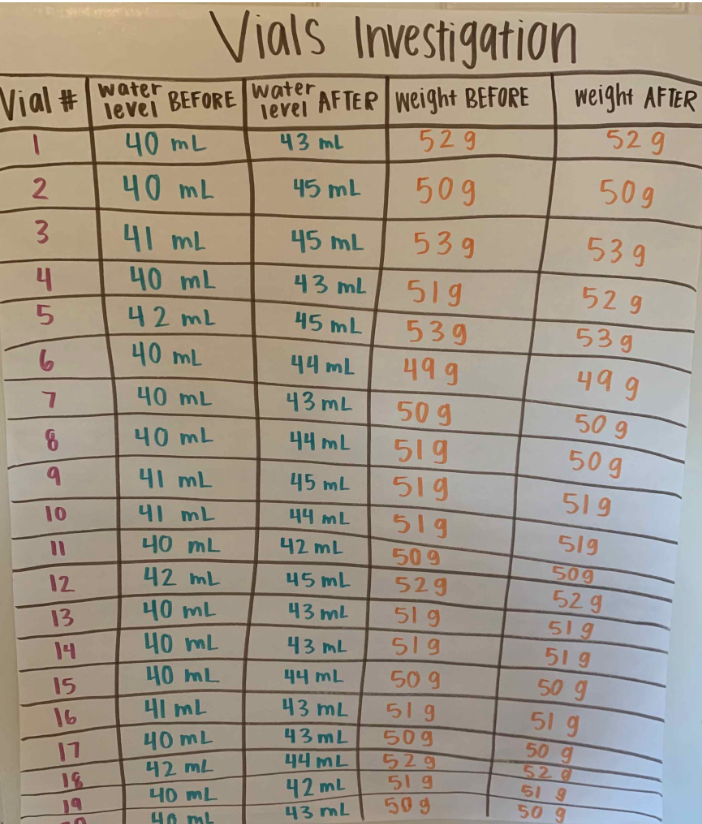 Vials Investigation
Vial # water level BEFORE water level AFTER weight BEFORE weight AFTER
1 40 mL 43 mL 52 g 52 g
2 40 mL 45 mL 50 g 50 g
3 41 mL 45 mL 53 g 53 g
4 40 mL 43 mL 51 g 52 g
5 42 mL 45 mL 53 g 53 g
6 40 mL 44 mL 49 g 49 g
7 40 mL 43 mL 50 g 50 g
8 40 mL 44 mL 51 g 50 g
9 41 mL 45 mL 51 g 51 g
10 41 mL 44 mL 51 g 51 g
11 40 mL 42 mL 50 g 50 g
12 42 mL 45 mL 52 g 52 g
13 40 mL 43 mL 51 g 51 g
14 40 mL 43 mL 51 g 51 g
15 40 mL 44 mL 50 g 50 g
16 41 mL 43 mL 51 g 51 g
17 40 mL 43 mL 50 g 50 g
18 42 mL 44 mL 52 g 52 g
19 40 mL 42 mL 51 g 51 g
40 mL 43 mL 50 g 50 g